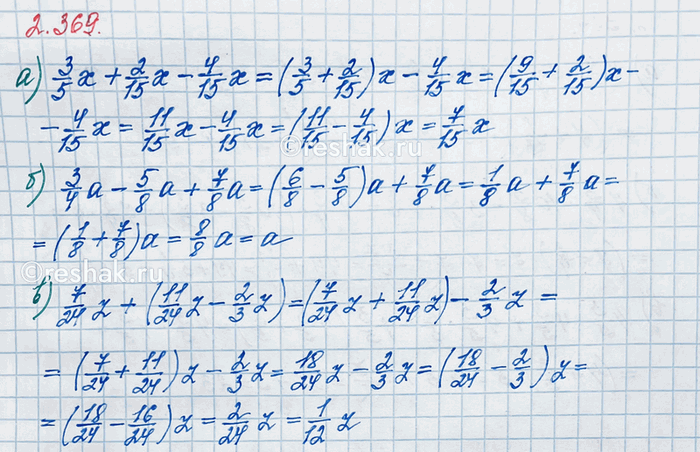 2.369.
а) 3/5 x + 2/15 x − 4/15 x = (3/5 + 2/15) x − 4/15 x = (9/15 + 2/15) x −
− 4/15 x = 11/15 x − 4/15 x = (11/15 − 4/15) x = 7/15 x
©reshak.ru
б) 3/4 a − 5/8 a + 7/8 a = (6/8 − 5/8) a + 7/8 a = 1/8 a + 7/8 a =
= (1/8 + 7/8) a = 8/8 a = a
©reshak.ru
в) 7/24 z + (11/24 z − 2/3 z) = (7/24 z + 11/24 z) − 2/3 z =
= (7/24 + 11/24) z − 2/3 z = 18/24 z − 2/3 z = (18/24 − 2/3) z =
= (18/24 − 16/24) z = 2/24 z = 1/12 z